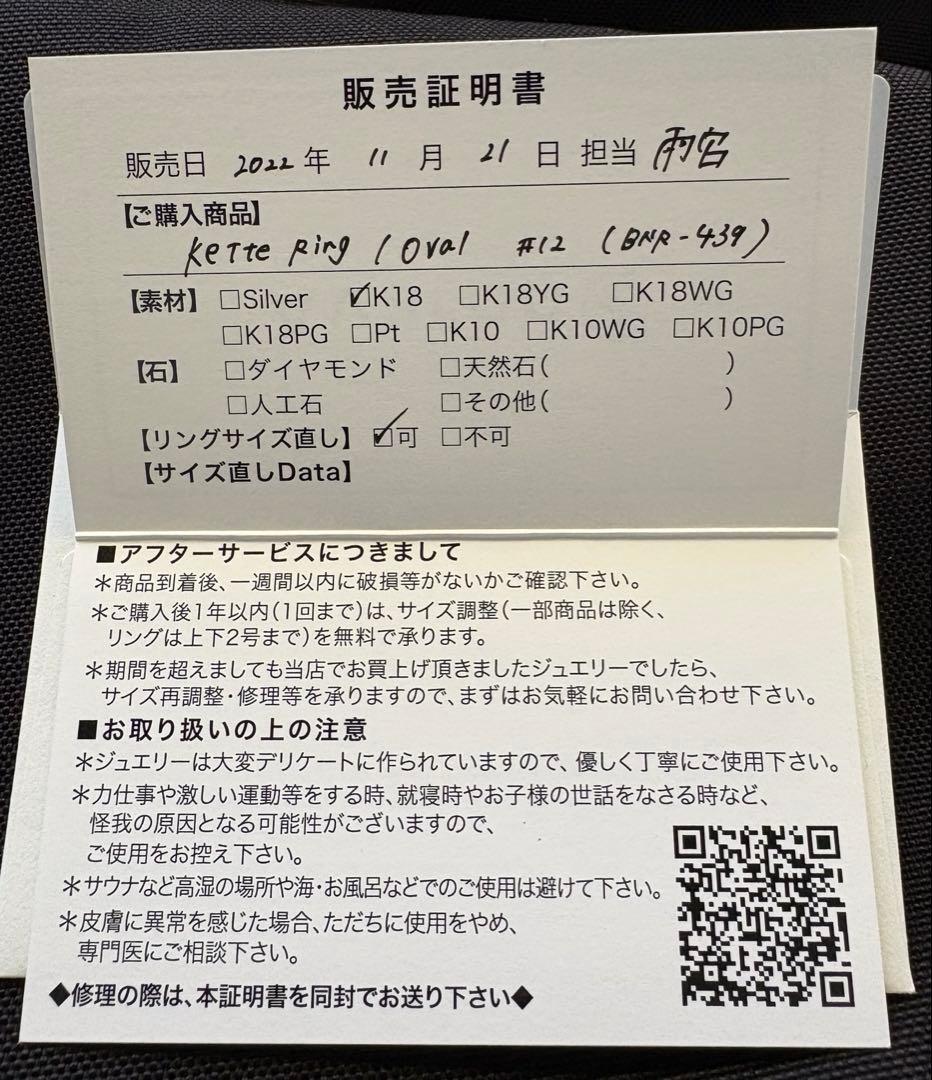 販売証明書
販売日 2022年 11月 21日 担当 雨宮
【ご購入商品】
Kette Ring / Oval #12 (BNR-439)
【素材】 □Silver ☑K18 □K18YG □K18WG
□K18PG □Pt □K10 □K10WG □K10PG
【石】 □ダイヤモンド □天然石( )
□人工石 □その他( )
【リングサイズ直し】 ☑可 □不可
【サイズ直しData】
■アフターサービスにつきまして
＊商品到着後、一週間以内に破損等がないかご確認下さい。
＊ご購入後1年以内(1回まで)は、サイズ調整(一部商品は除く、
リングは上下2号まで)を無料で承ります。
＊期間を超えましても当店でお買上げ頂きましたジュエリーでしたら、
サイズ再調整・修理等を承りますので、まずはお気軽にお問い合わせ下さい。
■お取り扱いの上の注意
＊ジュエリーは大変デリケートに作られていますので、優しく丁寧にご使用下さい。
＊力仕事や激しい運動等をする時、就寝時やお子様の世話をなさる時など、
怪我の原因となる可能性がございますので、
ご使用をお控え下さい。
＊サウナなど高湿の場所や海・お風呂などでのご使用は避けて下さい。
＊皮膚に異常を感じた場合、ただちに使用をやめ、
専門医にご相談下さい。
◆修理の際は、本証明書を同封でお送り下さい◆